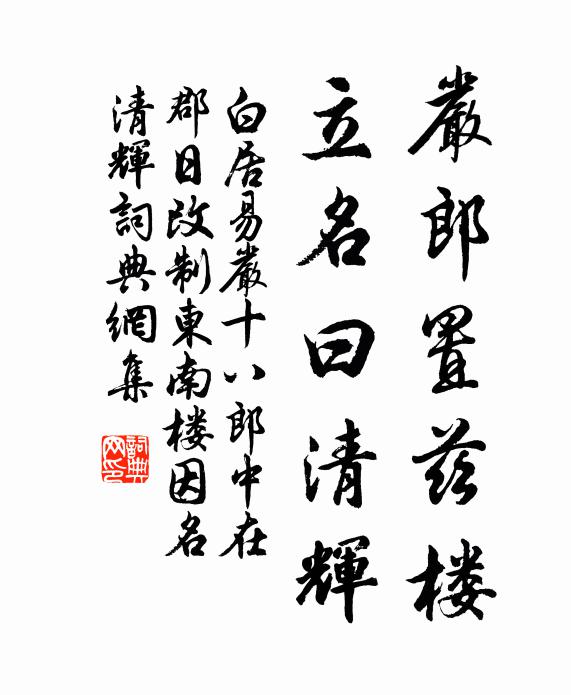 嚴郎置茲楼
立名曰清輝
白居易嚴十八郎中在
郡日改制東南楼因名
清輝詞典網集
詞典网印